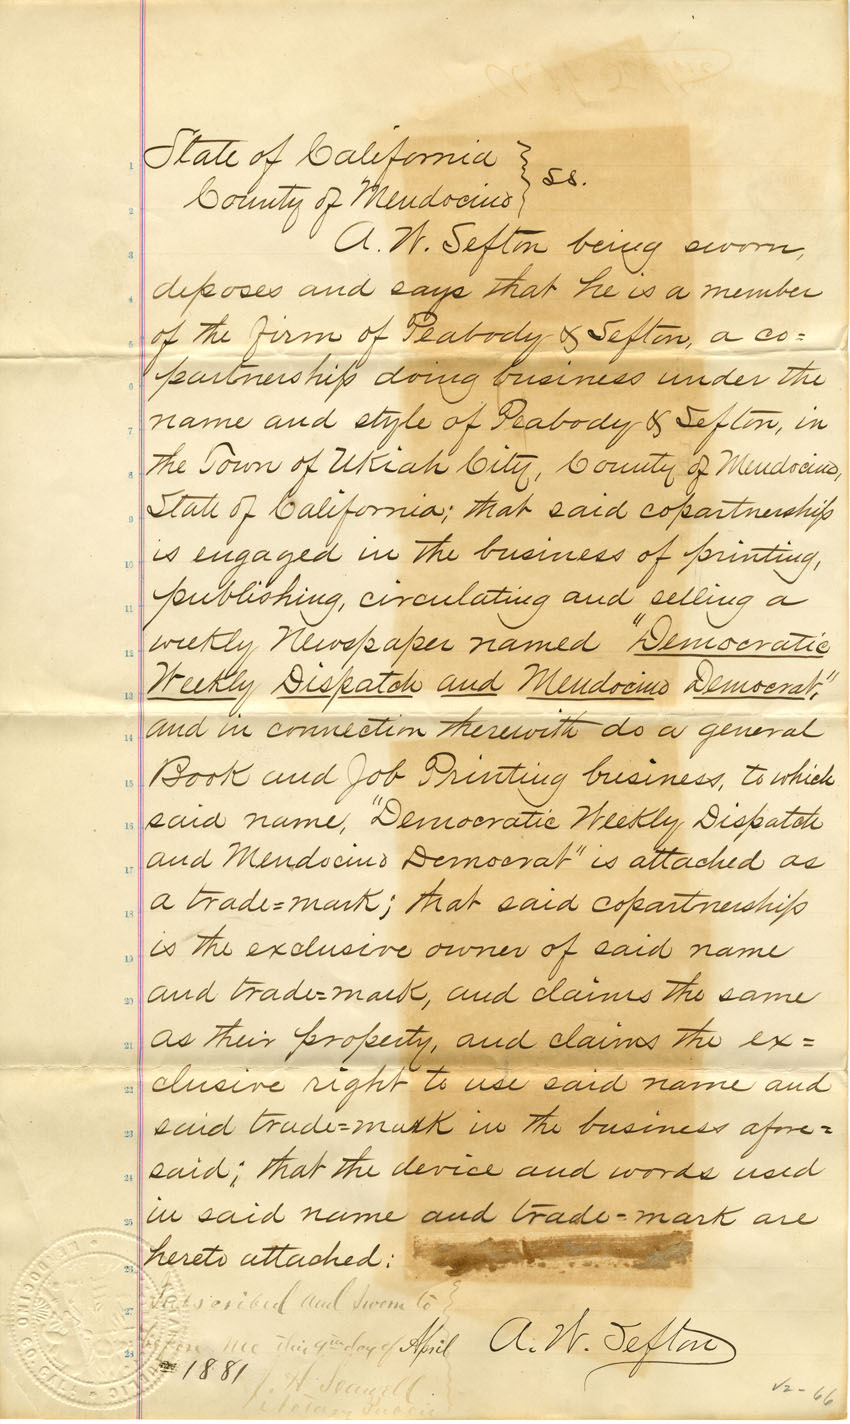 State of California } ss.
County of Mendocino
A. W. Sefton being sworn,
deposes and says that he is a member
of the firm of Peabody & Sefton, a co=
partnership doing business under the
name and style of Peabody & Sefton, in
the Town of Ukiah City, County of Mendocino,
State of California; that said copartnership
is engaged in the business of printing,
publishing, circulating and selling a
weekly Newspaper named "Democratic
Weekly Dispatch and Mendocino Democrat",
and in connection therewith do a general
Book and Job Printing business, to which
said name, "Democratic Weekly Dispatch
and Mendocino Democrat" is attached as
a trade=mark; that said copartnership
is the exclusive owner of said name
and trade=mark, and claims the same
as their property, and claims the ex=
clusive right to use said name and
said trade=mark in the business afore=
said; that the device and words used
in said name and trade-mark are
hereto attached:
Subscribed and sworn to
before me this 9th day of April
1881
A. W. Sefton
Notary Public
MENDOCINO CO. CALA.
v2-66
1
2
3
4
5
6
7
8
9
10
11
12
13
14
15
16
17
18
19
20
21
22
23
24
25
26
27
28